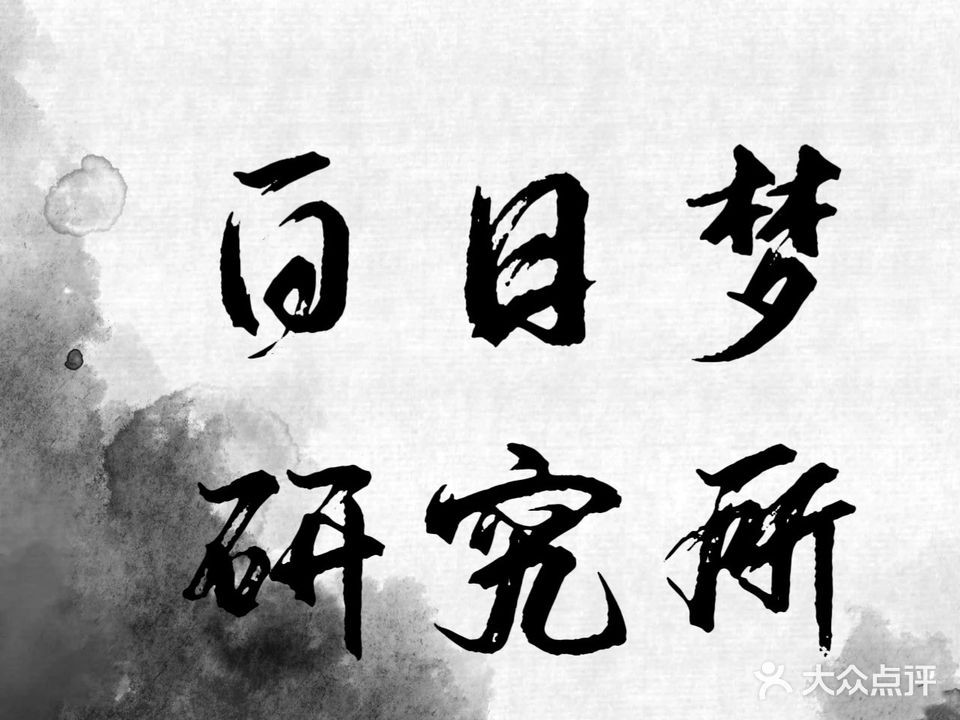 百日梦
研究所
大众点评